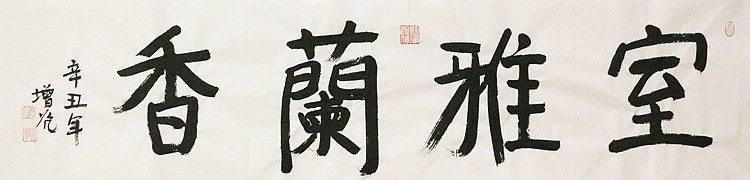 室雅蘭香
辛丑年
增